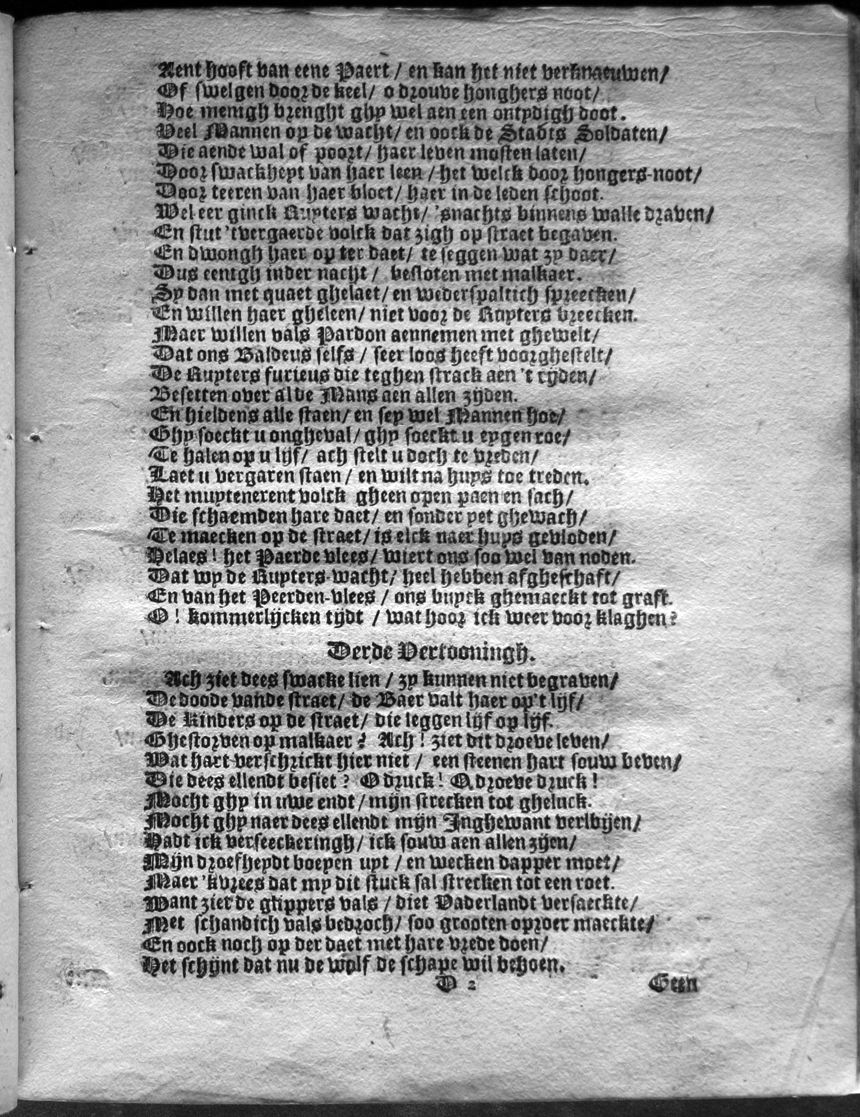 Aent hooft van eene Paert / en kan het niet verknaeuwen /
Of swelgen door de keel / o drouve honghers noot /
Hoe menigh brenght ghy wel aen een ontydigh doot.
Veel Mannen op de wacht / en oock de Stadts Soldaten /
Die aende wal of poort / haer leven mosten laten /
Door swackheyt van haer leen / het welck door hongers-noot /
Door teeren van haer bloet / haer in de leden schoot.
Wel eer ginck Ruyters wacht / 'snachts binnens walle draven /
En stut 'tvergaerde volck dat zigh op straet begaven.
En dwongh haer op ter daet / te seggen wat zy daer /
Dus eenigh inder nacht / besloten met malkaer.
Sy dan met quaet ghelaet / en wederspaltich spreecken /
En willen haer gheleen / niet voor de Ruyters breecken.
Maer willen vals Pardon aennemen met ghewelt /
Dat ons Baldeus selfs / seer loos heeft voorghestelt /
De Ruyters furieus die teghen strack aen 't rijden /
Besetten over al de Mans aen allen zijden.
En hieldens alle staen / en sey wel Mannen hoe /
Ghy soeckt u ongheval / ghy soeckt u eygen roe /
Te halen op u lijf / ach stelt u doch te vreden /
Laet u vergaren staen / en wilt na huys toe treden.
Het muytenerent volck gheen open paen en sach /
Die schaemden hare daet / en sonder yet ghewach /
Te maecken op de straet / is elck naer huys gevloden /
Helaes ! het Paerde vlees / wiert ons soo wel van noden.
Dat wy de Ruyters-wacht / heel hebben afgheschaft /
En van het Peerden-vlees / ons buyck ghemaeckt tot graft.
O ! kommerlijcken tijdt / wat hoor ick weer voor klaghen ?
Derde Vertooningh.
Ach ziet dees swacke lien / zy kunnen niet begraven /
De doode vande straet / de Baer valt haer op't lijf /
De Kinders op de straet / die leggen lijf op lijf.
Ghestorven op malkaer ? Ach ! ziet dit droeve leven /
Wat hart verschrickt hier niet / een steenen hart souw beven /
Die dees ellendt besiet ? O druck ! O droeve druck !
Mocht ghy in uwe endt / mijn strecken tot gheluck.
Mocht ghy naer dees ellendt mijn Inghewant verblyen /
Hadt ick verseeckeringh / ick souw aen allen zijen /
Mijn droefheydt boeyen uyt / en wecken dapper moet /
Maer 'kvrees dat my dit stuck sal strecken tot een roet.
Want zier de glippers vals / diet Vaderlandt versaeckte /
Met schandich vals bedroch / soo grooten oproer maeckte /
En oock noch op der daet met hare vrede doen /
Het schijnt dat nu de wolf de schape wil behoen.
D 2 Geen